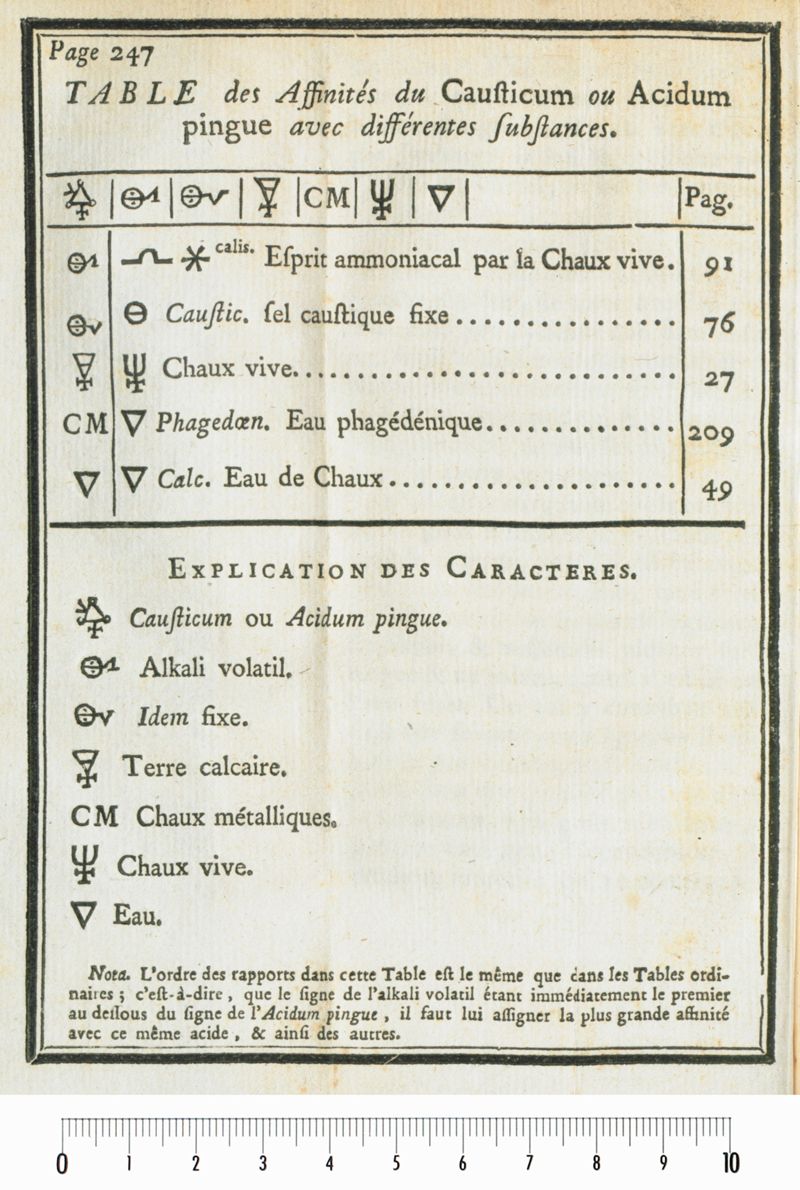 Page 247
TABLE des Affinités du Cauſticum ou Acidum
pingue avec différentes ſubſtances.
CM Pag.
calis. Eſprit ammoniacal par la Chaux vive. 91
Cauſtic. ſel cauſtique fixe ................ 76
Chaux vive............................ 27
CM ▽ Phagedœn. Eau phagédénique.............. 209
▽ ▽ Calc. Eau de Chaux ..................... 49
EXPLICATION DES CARACTERES.
Cauſticum ou Acidum pingue.
Alkali volatil.
Idem fixe.
Terre calcaire.
CM Chaux métalliques.
Chaux vive.
▽ Eau.
Nota. L'ordre des rapports dans cette Table eſt le même que dans les Tables ordi-
naires ; c'eſt-à-dire, que le ſigne de l'alkali volatil étant immédiatement le premier
au deſſous du ſigne de l'Acidum pingue, il faut lui aſſigner la plus grande affinité
avec ce même acide, & ainſi des autres.
0 1 2 3 4 5 6 7 8 9 10